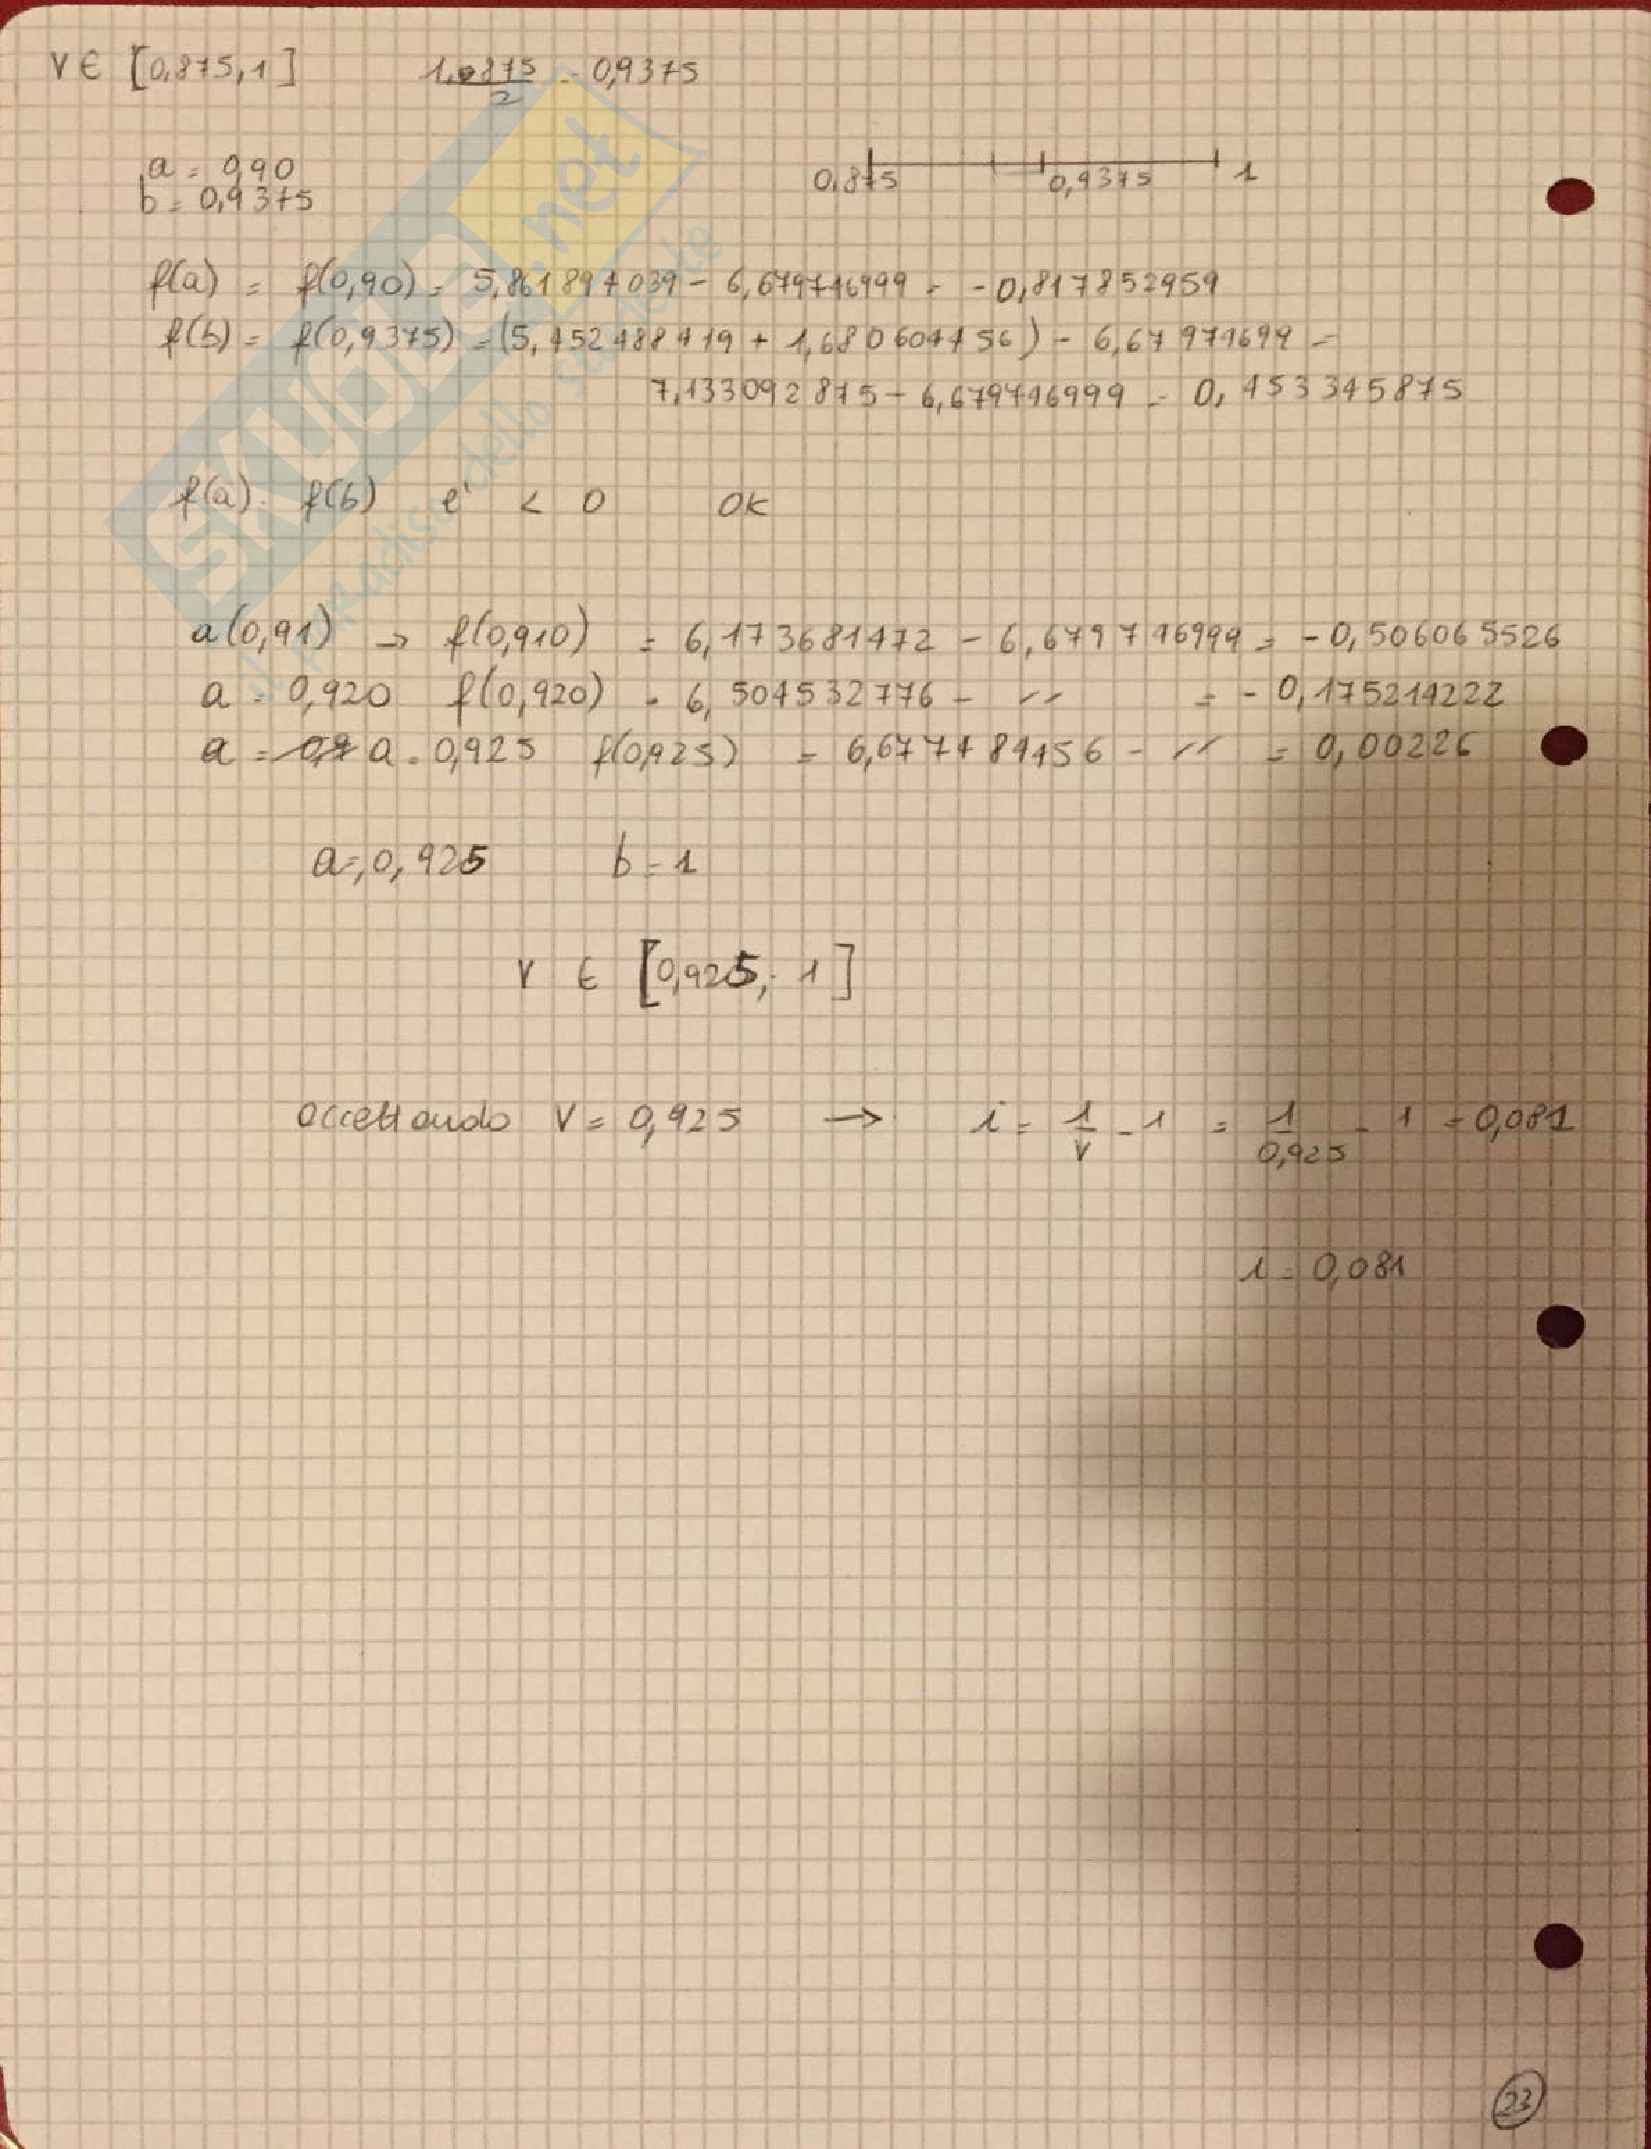 V ∈ [0,875, 1] 1,0875/2 = 0,9375
a = 0,90
b = 0,9375
0,875 0,9375 1
f(a) = f(0,90) = 5,861894039 - 6,679746999 = -0,817852959
f(b) = f(0,9375) = (5,452488419 + 1,680604456) - 6,67974699 =
7,133092875 - 6,679746999 = 0,453345875
f(a) · f(b) e' < 0 OK
a(0,91) → f(0,910) = 6,173681472 - 6,679746999 = -0,506065526
a = 0,920 f(0,920) = 6,504532776 - // = -0,175214222
a = a = 0,925 f(0,925) = 6,677484456 - // = 0,00226
a = 0,925 b = 1
V ∈ [0,925; 1]
accettando V = 0,925 → i = 1/V - 1 = 1/0,925 - 1 = 0,081
i = 0,081
23
SKUOLA.net
il paradiso dello studente